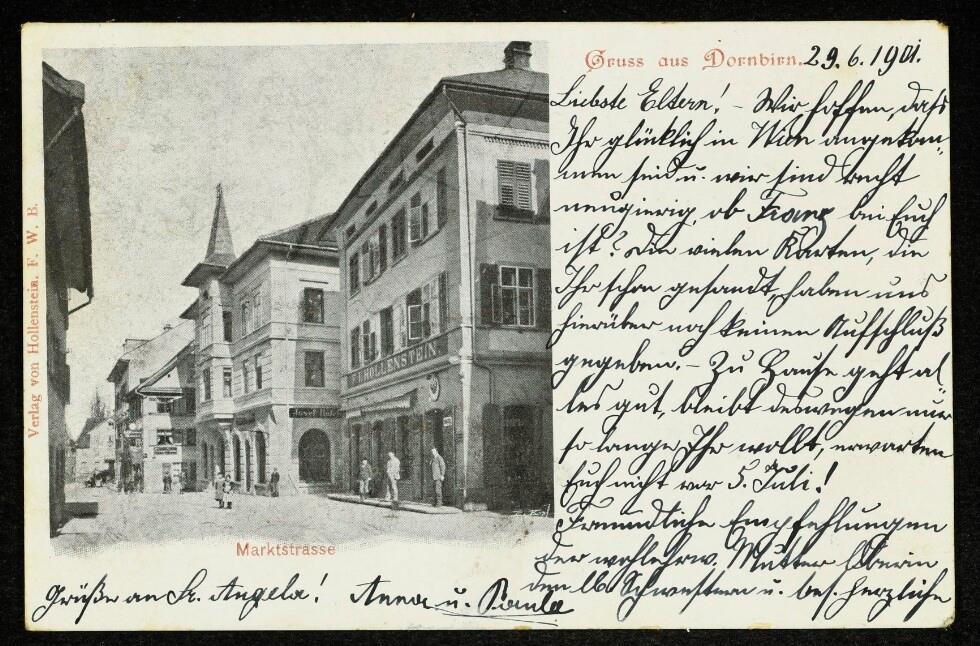 Gruss aus Dornbirn. 29.6.1901.
Liebste Eltern! – Wir hoffen, daß
Ihr glücklich in Wien angekom„
men seid u. wir sind recht
neugierig, ob Franz bei Euch
ist? Die vielen Karten, die
Ihr schon gesandt, haben uns
hierüber noch keinen Aufschluß
gegeben. – Zu Hause geht al„
les gut, bleibt deswegen nur
so lange Ihr wollt, erwarten
Euch nicht vor 5. Juli!
Freundliche Empfehlungen
der wohlehrw. Mutter Oberin
den lb. Schwestern u. bes. herzliche
Grüße an Sr. Angela! Anna u. Paula
Marktstrasse
Verlag von Hollenstein. F. W. B.
HOLLENSTEIN
Josef